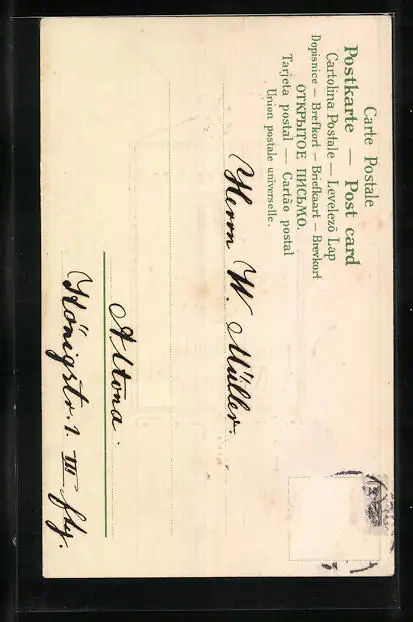 Carte Postale
Postkarte — Post card
Cartolina Postale — Levelező Lap
Dopisnice — Brefkort — Briefkaart — Brevkort
ОТКРЫТОЕ ПИСЬМО.
Tarjeta postal — Cartão postal
Union postale universelle.
Herrn W. Müller.
Altona.
Königstr. 1. III